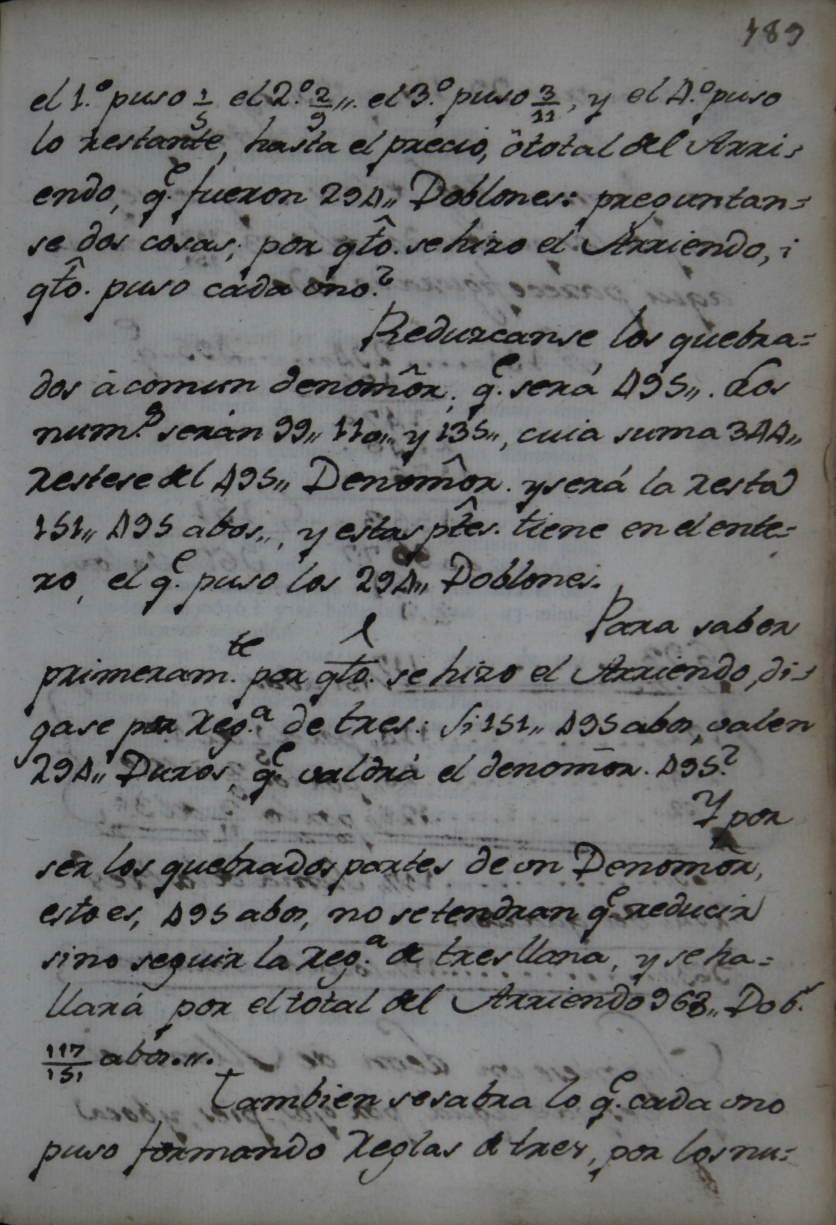 189
el 1.º puso 1/5 el 2.º 2/9,, el 3.º puso 3/11, y el 4.º puso
lo restante, hasta el precio, ò total del Arri-
endo, q.e fueron 294,, Doblones: preguntan=
se dos cosas; por qto. se hizo el Arriendo, i
qto. puso cada uno?
Reduzcanse los quebra=
dos à comun denomor. q.e será 495,,. Los
num.s serán 99,, 110,, y 135,, cuia suma 344,,
restese del 495,, Denomor. y será la resta
151,, 495 abos,, y estas ptes. tiene en el ente=
ro, el q.e puso los 294,, Doblones.
Para saber
primeram.te por qto. se hizo el Arriendo, di-
gase por Reg.a de tres: Si 151,, 495 abos, valen
294,, Duros, q.e valdrá el denomor. 495?
Y por
ser los quebrados partes de un Denomor,
esto es, 495 abos, no se tendran q.e reducir
sino seguir la Reg.a de tres llana, y se ha=
llará por el total del Arriendo 963,, Dob.s
117/151 abos.,,.
Tambien se sabra lo q.e cada uno
puso formando Reglas de tres, por los nu-